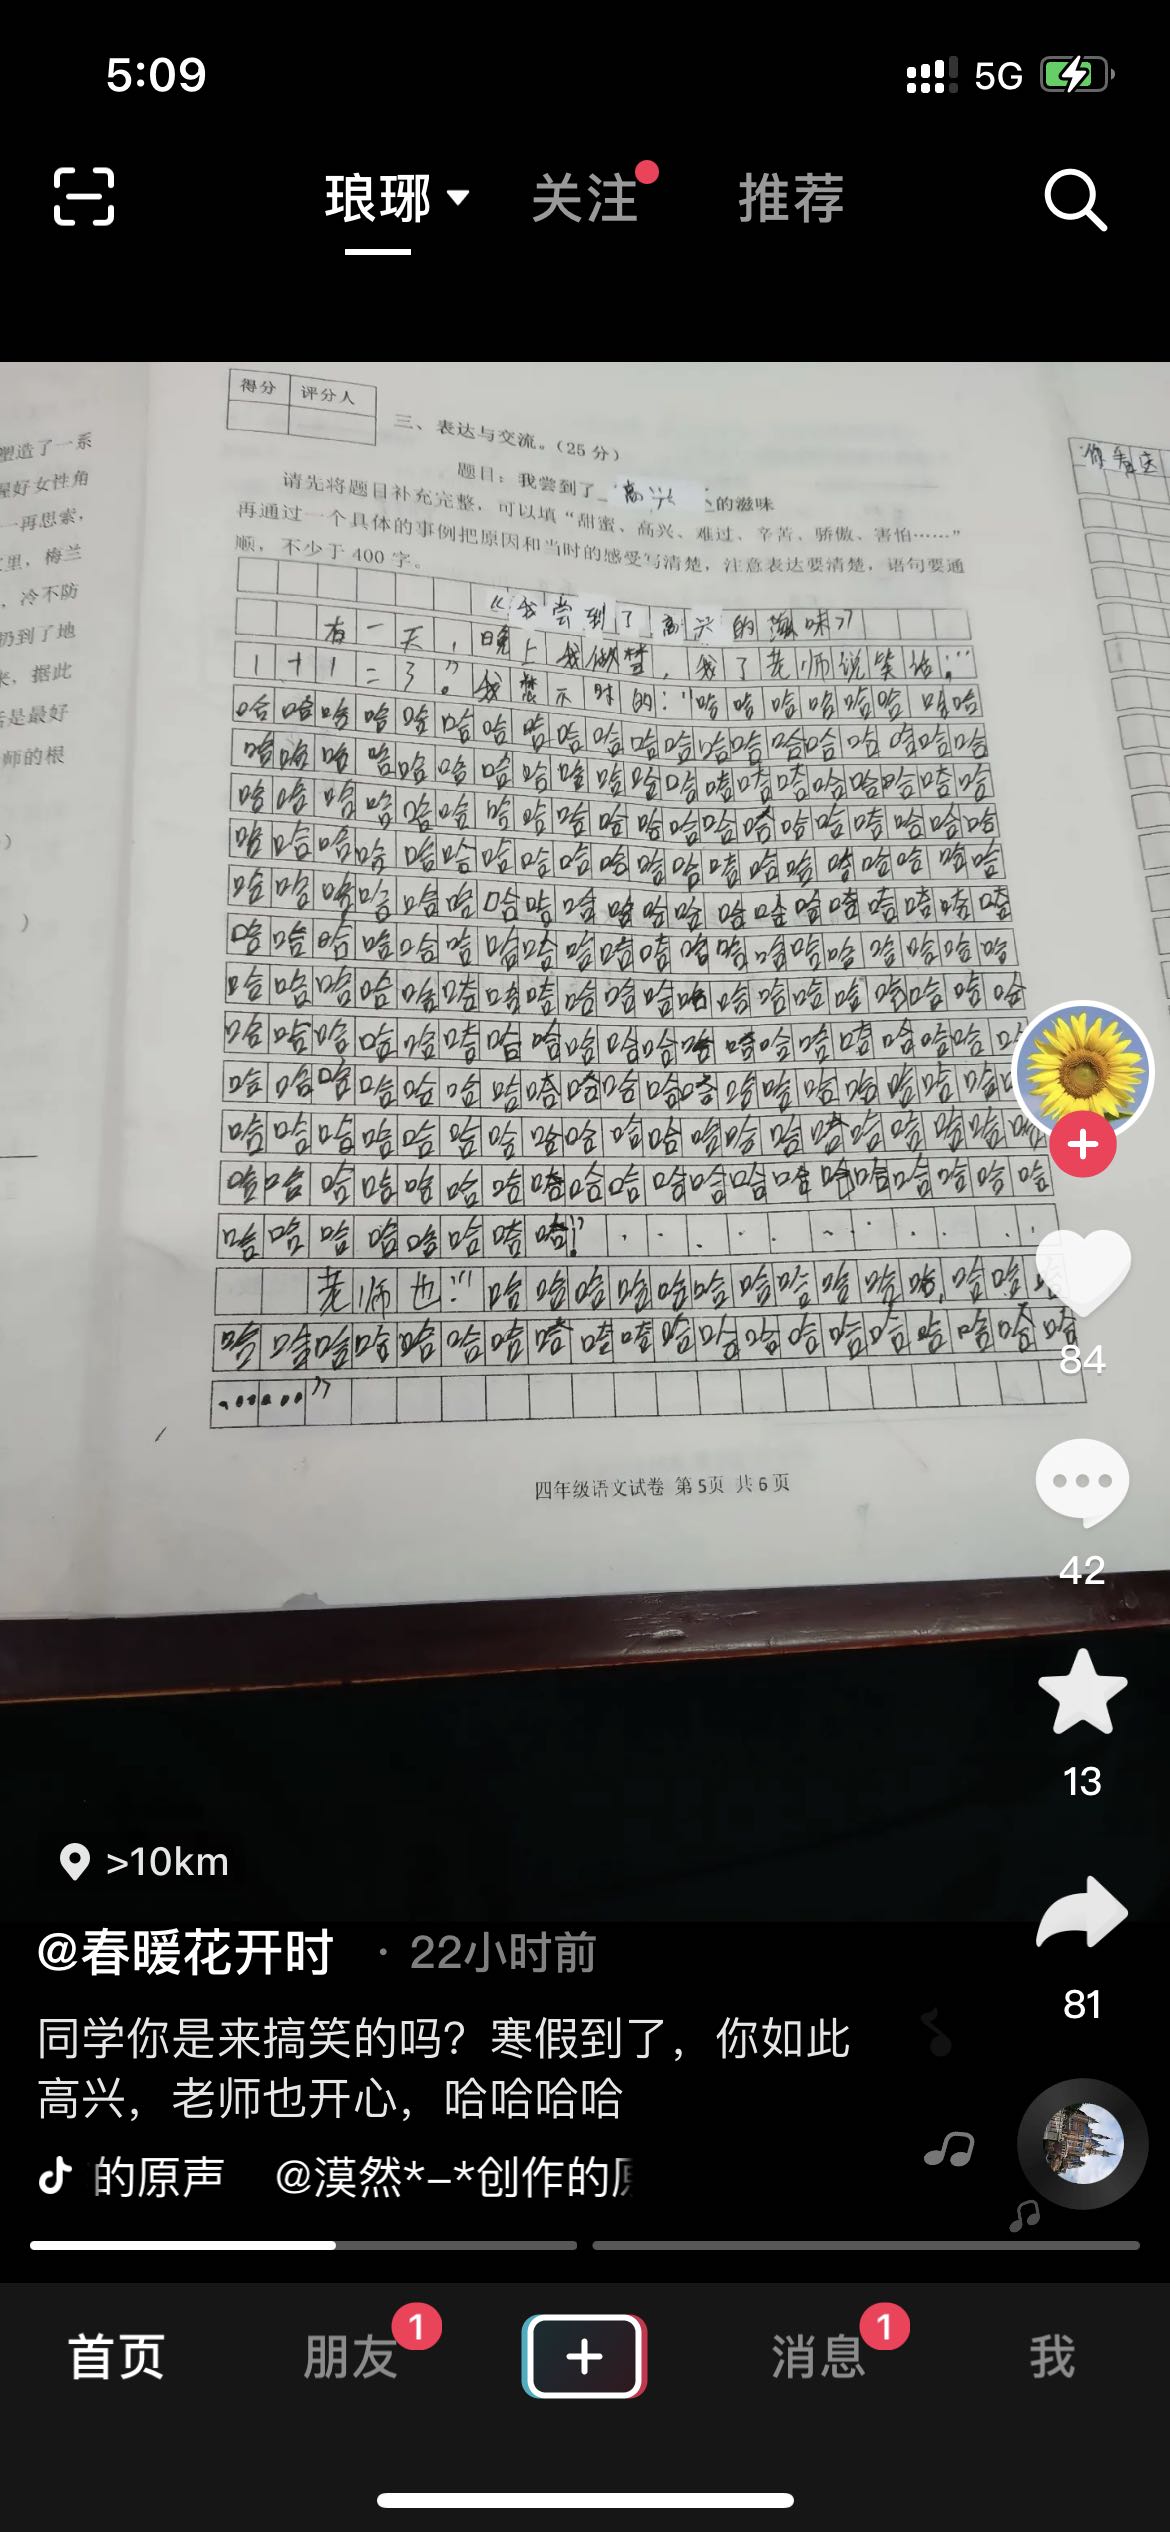 5:09
5G
琅琊
关注
推荐
得分 评分人
三、表达与交流。（25分）
题目：我尝到了 高兴 的滋味
请先将题目补充完整，可以填“甜蜜、高兴、难过、辛苦、骄傲、害怕……”
再通过一个具体的事例把原因和当时的感受写清楚，注意表达要清楚，语句要通
顺，不少于400字。
塑造了一系
好女性角
一再思索，
里，梅兰
，冷不防
扔到了地
来，据此
是最好
师的根
你看这
《我尝到了高兴的滋味》
有一天，晚上我做梦，我了老师说笑话：“
1+1=3。”我 时的：“哈哈哈哈哈哈哈哈
哈哈哈哈哈哈哈哈哈哈哈哈哈哈哈哈哈哈哈哈
哈哈哈哈哈哈哈哈哈哈哈哈哈哈哈哈哈哈哈哈
哈哈哈哈哈哈哈哈哈哈哈哈哈哈哈哈哈哈哈哈
哈哈哈哈哈哈哈哈哈哈哈哈哈哈哈哈哈哈哈哈
哈哈哈哈哈哈哈哈哈哈哈哈哈哈哈哈哈哈哈哈
哈哈哈哈哈哈哈哈哈哈哈哈哈哈哈哈哈哈哈哈
哈哈哈哈哈哈哈哈哈哈哈哈哈哈哈哈哈哈哈哈
哈哈哈哈哈哈哈哈哈哈哈哈哈哈哈哈哈哈哈
哈哈哈哈哈哈哈哈哈哈哈哈哈哈哈哈哈哈哈
哈哈哈哈哈哈哈哈哈哈哈哈哈哈哈哈哈哈哈哈
哈哈哈哈哈哈哈哈哈哈哈哈哈哈哈哈哈哈哈哈
哈哈哈哈哈哈哈哈！”
老师也：“哈哈哈哈哈哈哈哈哈哈哈哈哈哈
哈哈哈哈哈哈哈哈哈哈哈哈哈哈哈哈哈哈哈哈
……”
四年级语文试卷 第5页 共6页
84
42
13
81
>10km
@春暖花开时 · 22小时前
同学你是来搞笑的吗？寒假到了，你如此
高兴，老师也开心，哈哈哈哈
的原声 @漠然*-*创作的
首页
朋友
1
消息
1
我